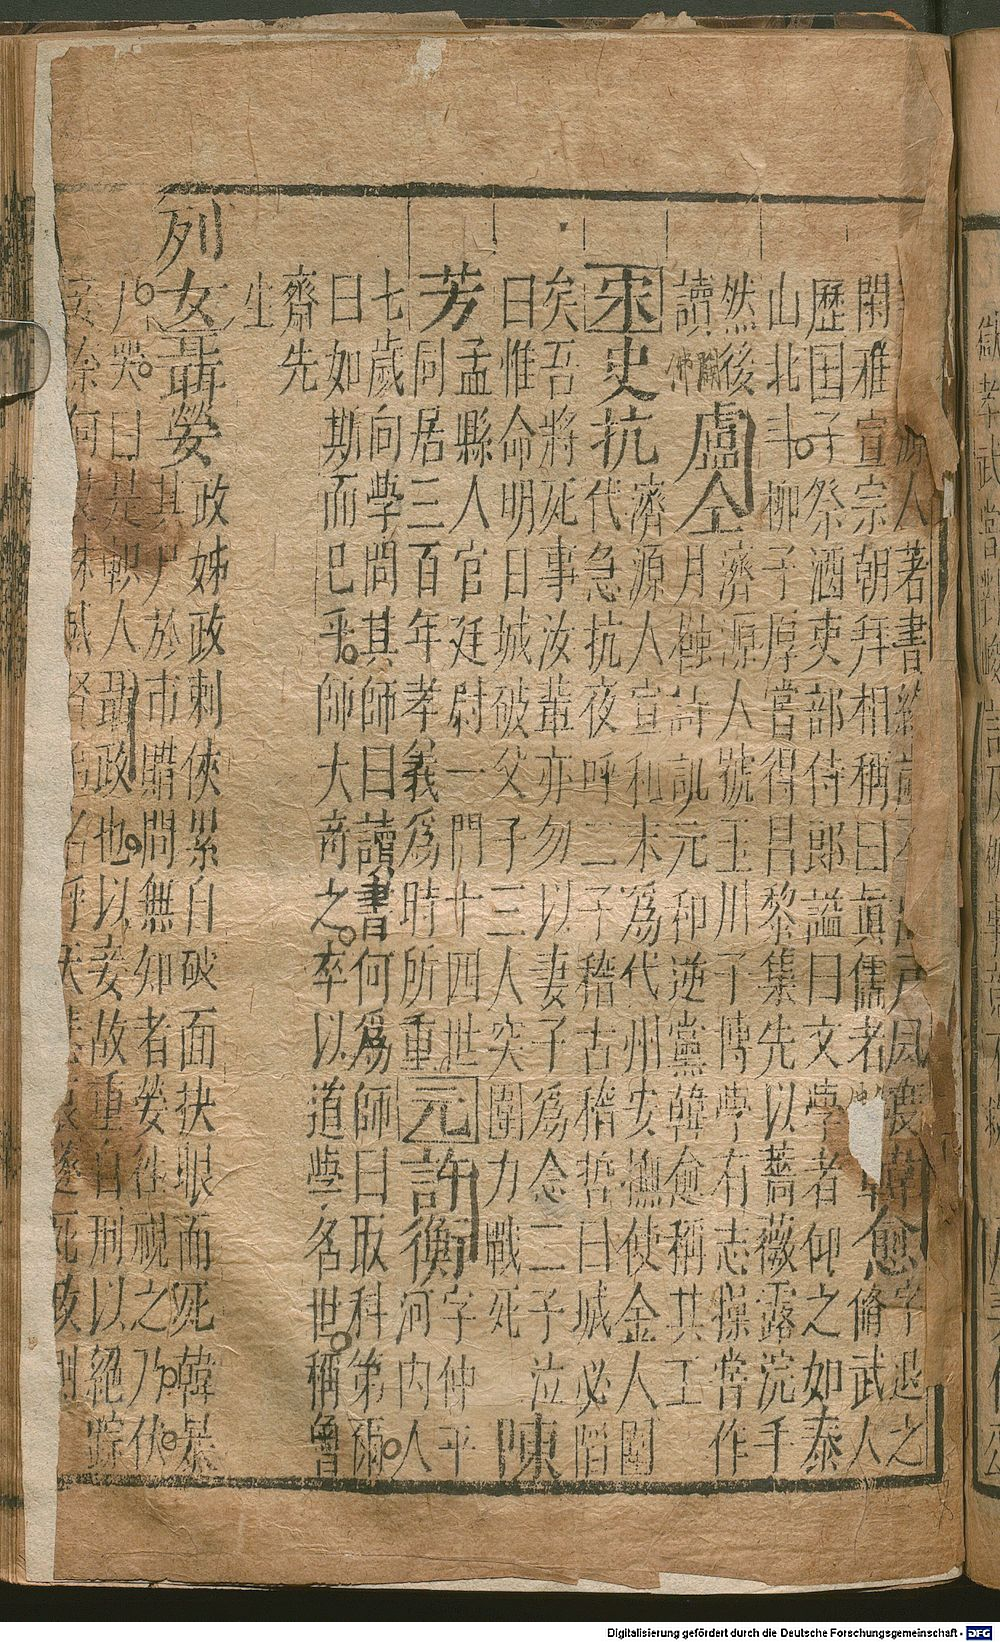 源人著書 戶風度韓愈字退之
閑雅宣宗朝拜相稱曰眞儒者 愈脩武人
歷国子祭酒吏部侍郎謚曰文學者仰之如泰
山北斗柳子厚嘗得昌黎集先以薔薇露浣手
然後 濟源人號玉川子博學有志操嘗作
讀 闢佛 盧仝 月蝕詩訊元和逆黨韓愈稱其工
宋史抗 濟源人宣和末爲代州安撫使金人圍
代急抗夜呼二子稽古稽哲曰城必陷
矣吾將死事汝輩亦勿以妻子爲念二子泣
曰惟命明日城破父子三人突圍力戰死 陳
芳 孟縣人官廷尉一門十四世
同居三百年孝義爲時所重 元許衡 字仲平河内人
七歲向學問其師曰讀書何爲師曰取科第爾
曰如斯而已乎師大竒之卒以道學名世稱魯
齋先
生
列女聶嫈 政姊政刺俠累自破面抉眼而死韓暴
其尸於市購問無知者嫈往視之乃伏
尸哭曰是軹人聶政也以妾故重自刑以絕踪
妾 何 名呼天 遂死政側
Digitalisierung gefördert durch die Deutsche Forschungsgemeinschaft - DFG